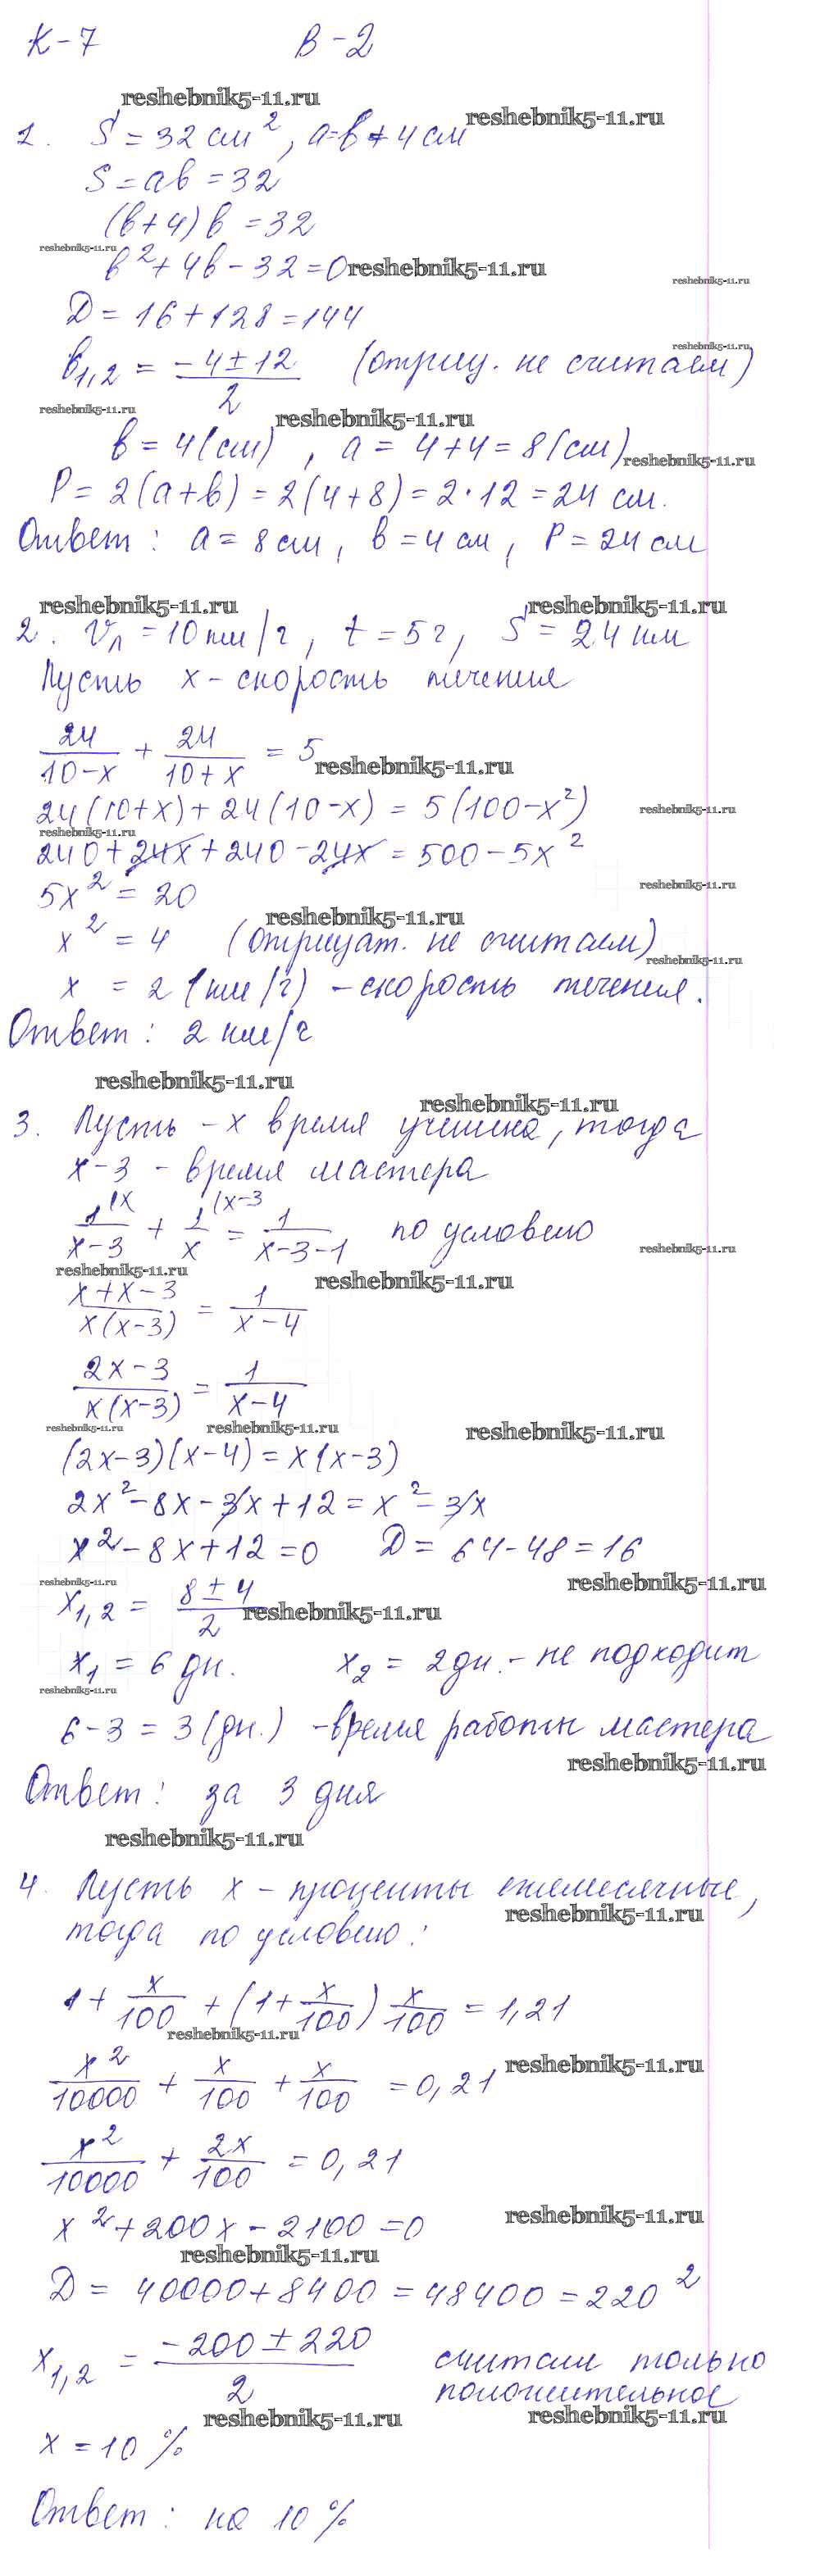 К-7 В-2
reshebnik5-11.ru
reshebnik5-11.ru
1. S = 32 см², a = b + 4 см
S = ab = 32
(b+4) b = 32
reshebnik5-11.ru
b² + 4b - 32 = 0
reshebnik5-11.ru
reshebnik5-11.ru
D = 16 + 128 = 144
reshebnik5-11.ru
b1,2 = (-4 ± 12)/2 (отриц. не считаем)
reshebnik5-11.ru
reshebnik5-11.ru
b = 4 (см), a = 4+4 = 8 (см)
reshebnik5-11.ru
P = 2(a+b) = 2(4+8) = 2·12 = 24 см.
Ответ: a = 8 см, b = 4 см, P = 24 см
reshebnik5-11.ru
reshebnik5-11.ru
2. Vл = 10 км/г, t = 5 г, S = 24 км
Пусть x - скорость течения
24/(10-x) + 24/(10+x) = 5
reshebnik5-11.ru
24(10+x) + 24(10-x) = 5(100-x²)
reshebnik5-11.ru
reshebnik5-11.ru
240 + 24x + 240 - 24x = 500 - 5x²
reshebnik5-11.ru
5x² = 20
reshebnik5-11.ru
x² = 4 (отрицат. не считаем)
reshebnik5-11.ru
x = 2 (км/г) - скорость течения.
Ответ: 2 км/г
reshebnik5-11.ru
reshebnik5-11.ru
3. Пусть - x время ученика, тогда
x-3 - время мастера
1\x/(x-3) + 1\x-3/x = 1/(x-3-1) по условию
reshebnik5-11.ru
reshebnik5-11.ru
reshebnik5-11.ru
(x+x-3)/(x(x-3)) = 1/(x-4)
(2x-3)/(x(x-3)) = 1/(x-4)
reshebnik5-11.ru
reshebnik5-11.ru
reshebnik5-11.ru
(2x-3)(x-4) = x(x-3)
2x² - 8x - 3x + 12 = x² - 3x
x² - 8x + 12 = 0 D = 64 - 48 = 16
reshebnik5-11.ru
reshebnik5-11.ru
x1,2 = (8 ± 4)/2
reshebnik5-11.ru
x1 = 6 дн. x2 = 2 дн. - не подходит
reshebnik5-11.ru
6-3 = 3 (дн.) - время работы мастера
reshebnik5-11.ru
Ответ: за 3 дня
reshebnik5-11.ru
4. Пусть x - проценты ежемесячные,
reshebnik5-11.ru
тогда по условию:
1 + x/100 + (1 + x/100) x/100 = 1,21
reshebnik5-11.ru
reshebnik5-11.ru
x²/10000 + x/100 + x/100 = 0,21
x²/10000 + 2x/100 = 0,21
x² + 200x - 2100 = 0
reshebnik5-11.ru
reshebnik5-11.ru
D = 40000 + 8400 = 48400 = 220²
x1,2 = (-200 ± 220)/2 считаем только
положительное
reshebnik5-11.ru
reshebnik5-11.ru
x = 10 %
Ответ: на 10 %